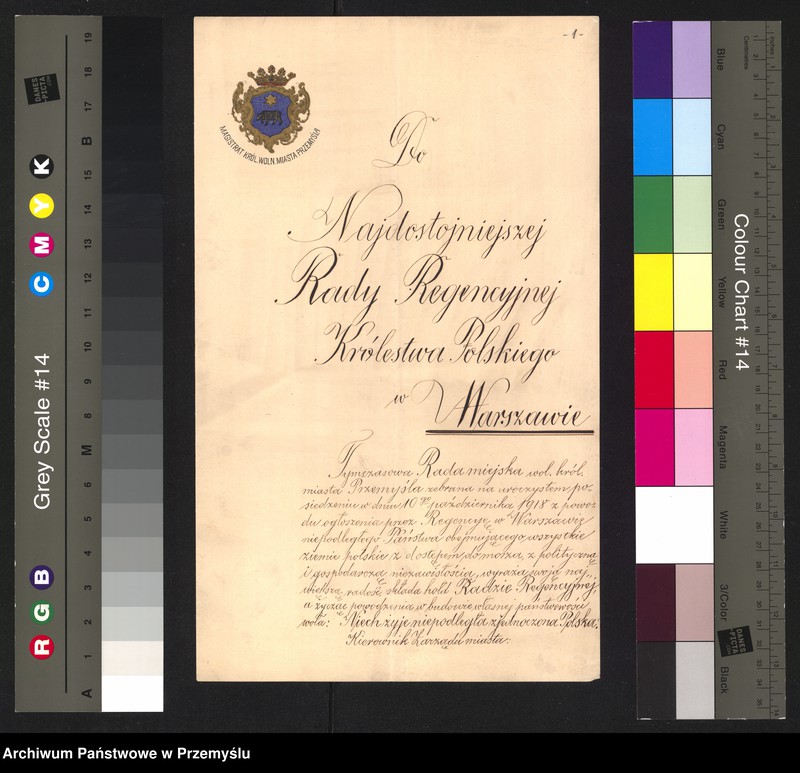 -1-
MAGISTRAT KRÓL.WOLN.MIASTA PRZEMYŚLA
Do
Najdostojniejszej
Rady Regencyjnej
Królestwa Polskiego
w Warszawie
Tymczasowa Rada miejska wol. król.
miasta Przemyśla zebrana na uroczystem po-
siedzeniu w dniu 10 października 1918 z powo-
du ogłoszenia przez Regencyę w Warszawie
niepodległego Państwa obejmującego wszystkie
ziemie polskie z dostępem do morza, z polityczną
i gospodarczą niezawisłością, wyraża swoją naj-
większą radość, składa hołd Radzie Regencyjnej,
a życząc powodzenia w budowie własnej państwowości
woła: Niech żyje niepodległa zjednoczona Polska.
Kierownik Zarządu miasta:
Grey Scale #14
R G B
C M Y K
A 1 2 3 4 5 6 M 8 9 10 11 12 13 14 15 B 17 18 19
DANES
PICTA
.COM
Colour Chart #14
Blue
Cyan
Green
Yellow
Red
Magenta
White
3/Color
Black
Centimetres
Inches
DANES
PICTA
.COM
Archiwum Państwowe w Przemyślu